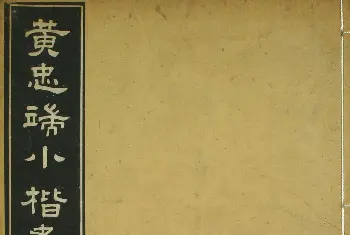 黄忠端小楷